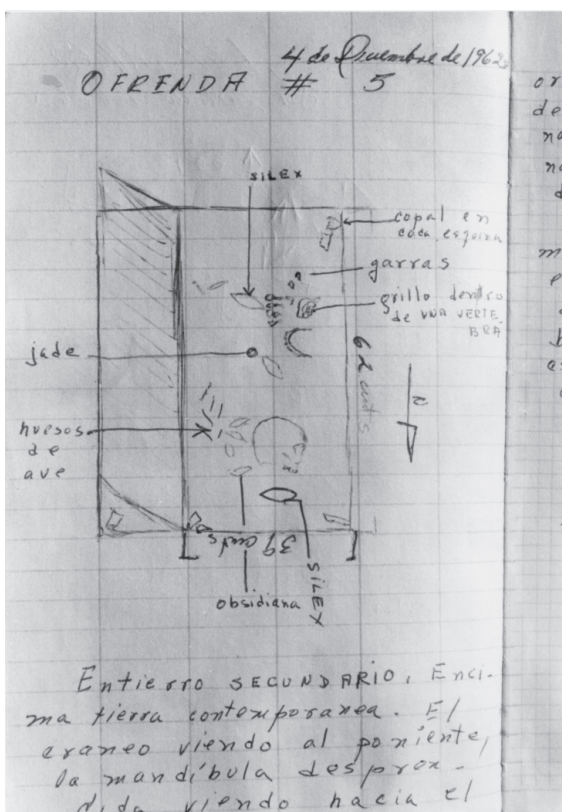 4 de Diciembre de 1962
OFRENDA # 5
SILEX
copal en
cada esquina
garras
grillo dentro
de UNA VERTE
BRA
jade
62 cmts
N
huesos
de
ave
39 cmts
SILEX
obsidiana
Entierro SECUNDARIO. Enci-
ma tierra contemporanea. El
craneo viendo al poniente,
la mandíbula despren-
dida viendo hacia el
or
de
na
na